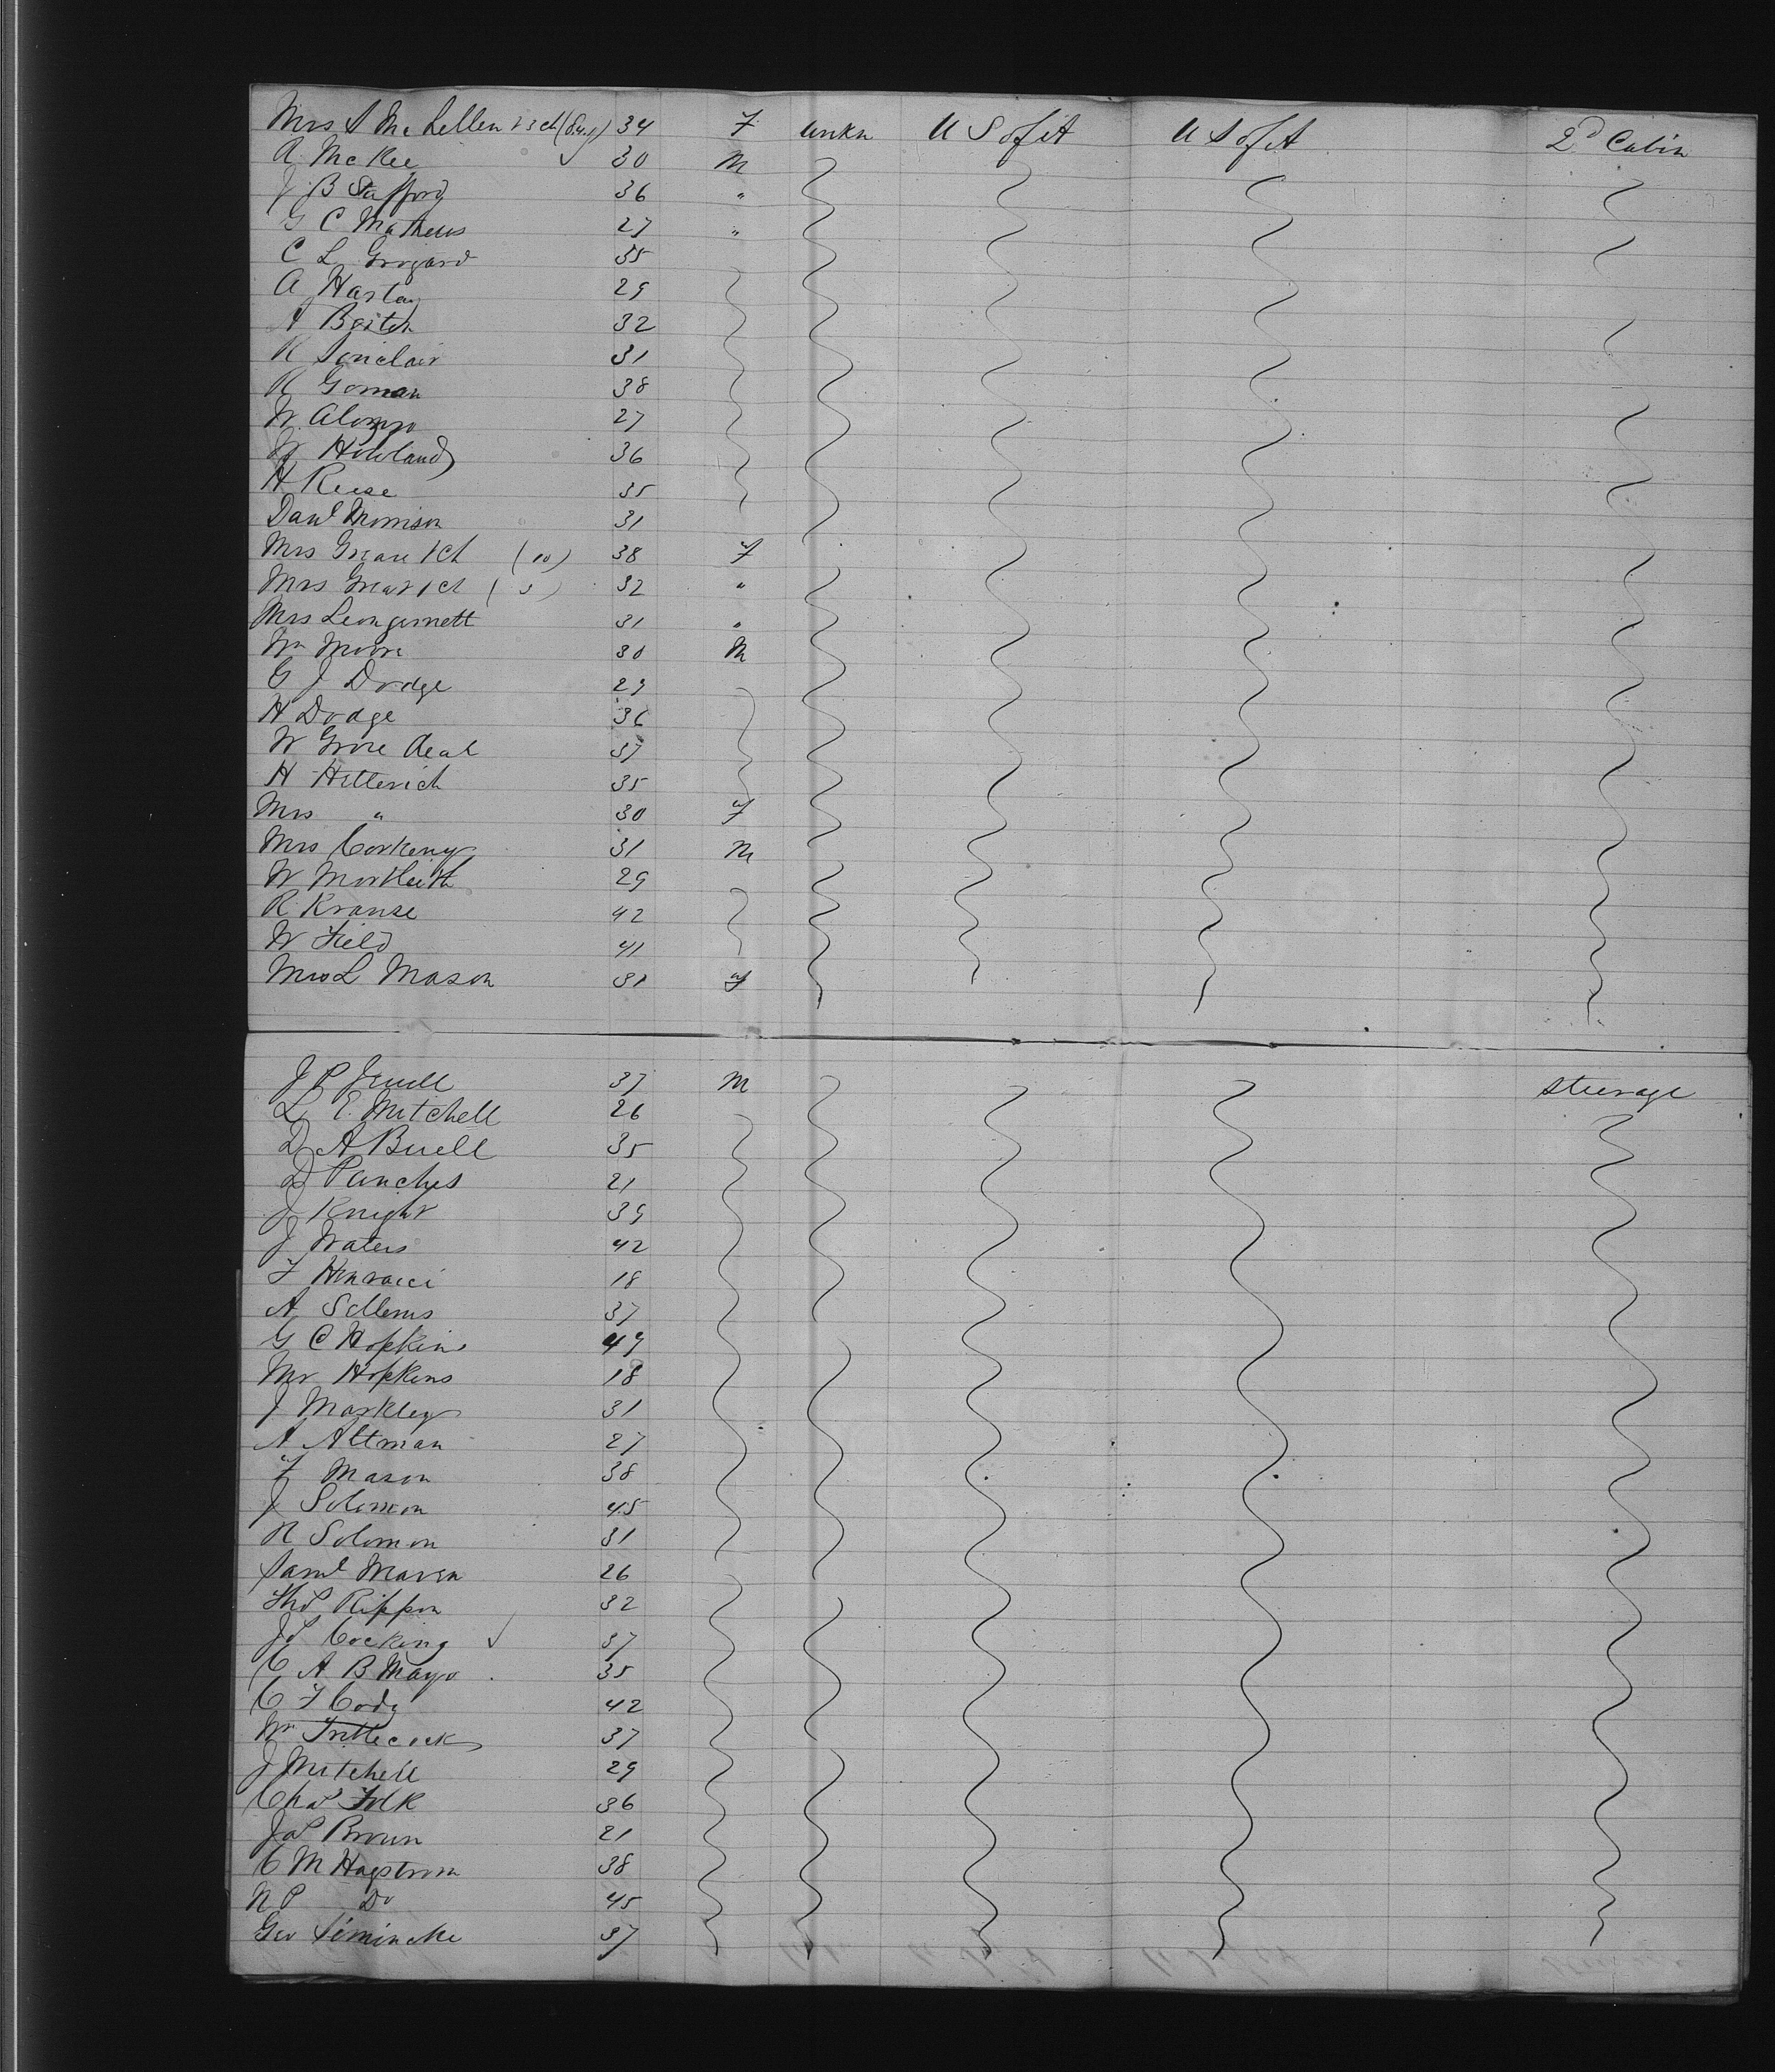 Mrs S McLellen & 3 ch (8.4.1) 34 F unkn U S of A U S of A 2d Cabin
R McKee 30 M
J B Stafford 36 "
G C Mathews 27 "
C L Grogard 35
A Harlay 29
A 32
R Sinclair 31
R Goman 38
W Alonzo 27
W Howland 36
H Reese 35
Danl Morrison 31
Mrs 1 ch (10) 38 F
Mrs 1 ch ( 3 ) 32 "
Mrs 31 "
Wm Moore 30 M
C J Dodge 29
H Dodge 36
W Grove 37
H Hitterich 35
Mrs " 30 F
Mrs Corkeny 31 M
W 29
R Krause 42
W Field 41
Mrs L Mason 31 F
J P Jewell 37 M Steerage
L E Mitchell 26
D A Buell 35
D Panches 21
J Knight 39
J Waters 42
F 18
A Sellems 37
G C Hopkins 49
Mr Hopkins 18
J Markley 31
A Altman 27
F Mason 38
J Solomon 45
R Solomon 31
Saml Maven 26
Thos Rippon 32
Js Cocking 37
C A B Mayo 35
C F Cody 42
Wm Trittlecock 37
J Mitchell 29
Chas Folk 36
Jas Brown 21
C M Hagstrom 38
N P Do 45
Geo Simincke 37